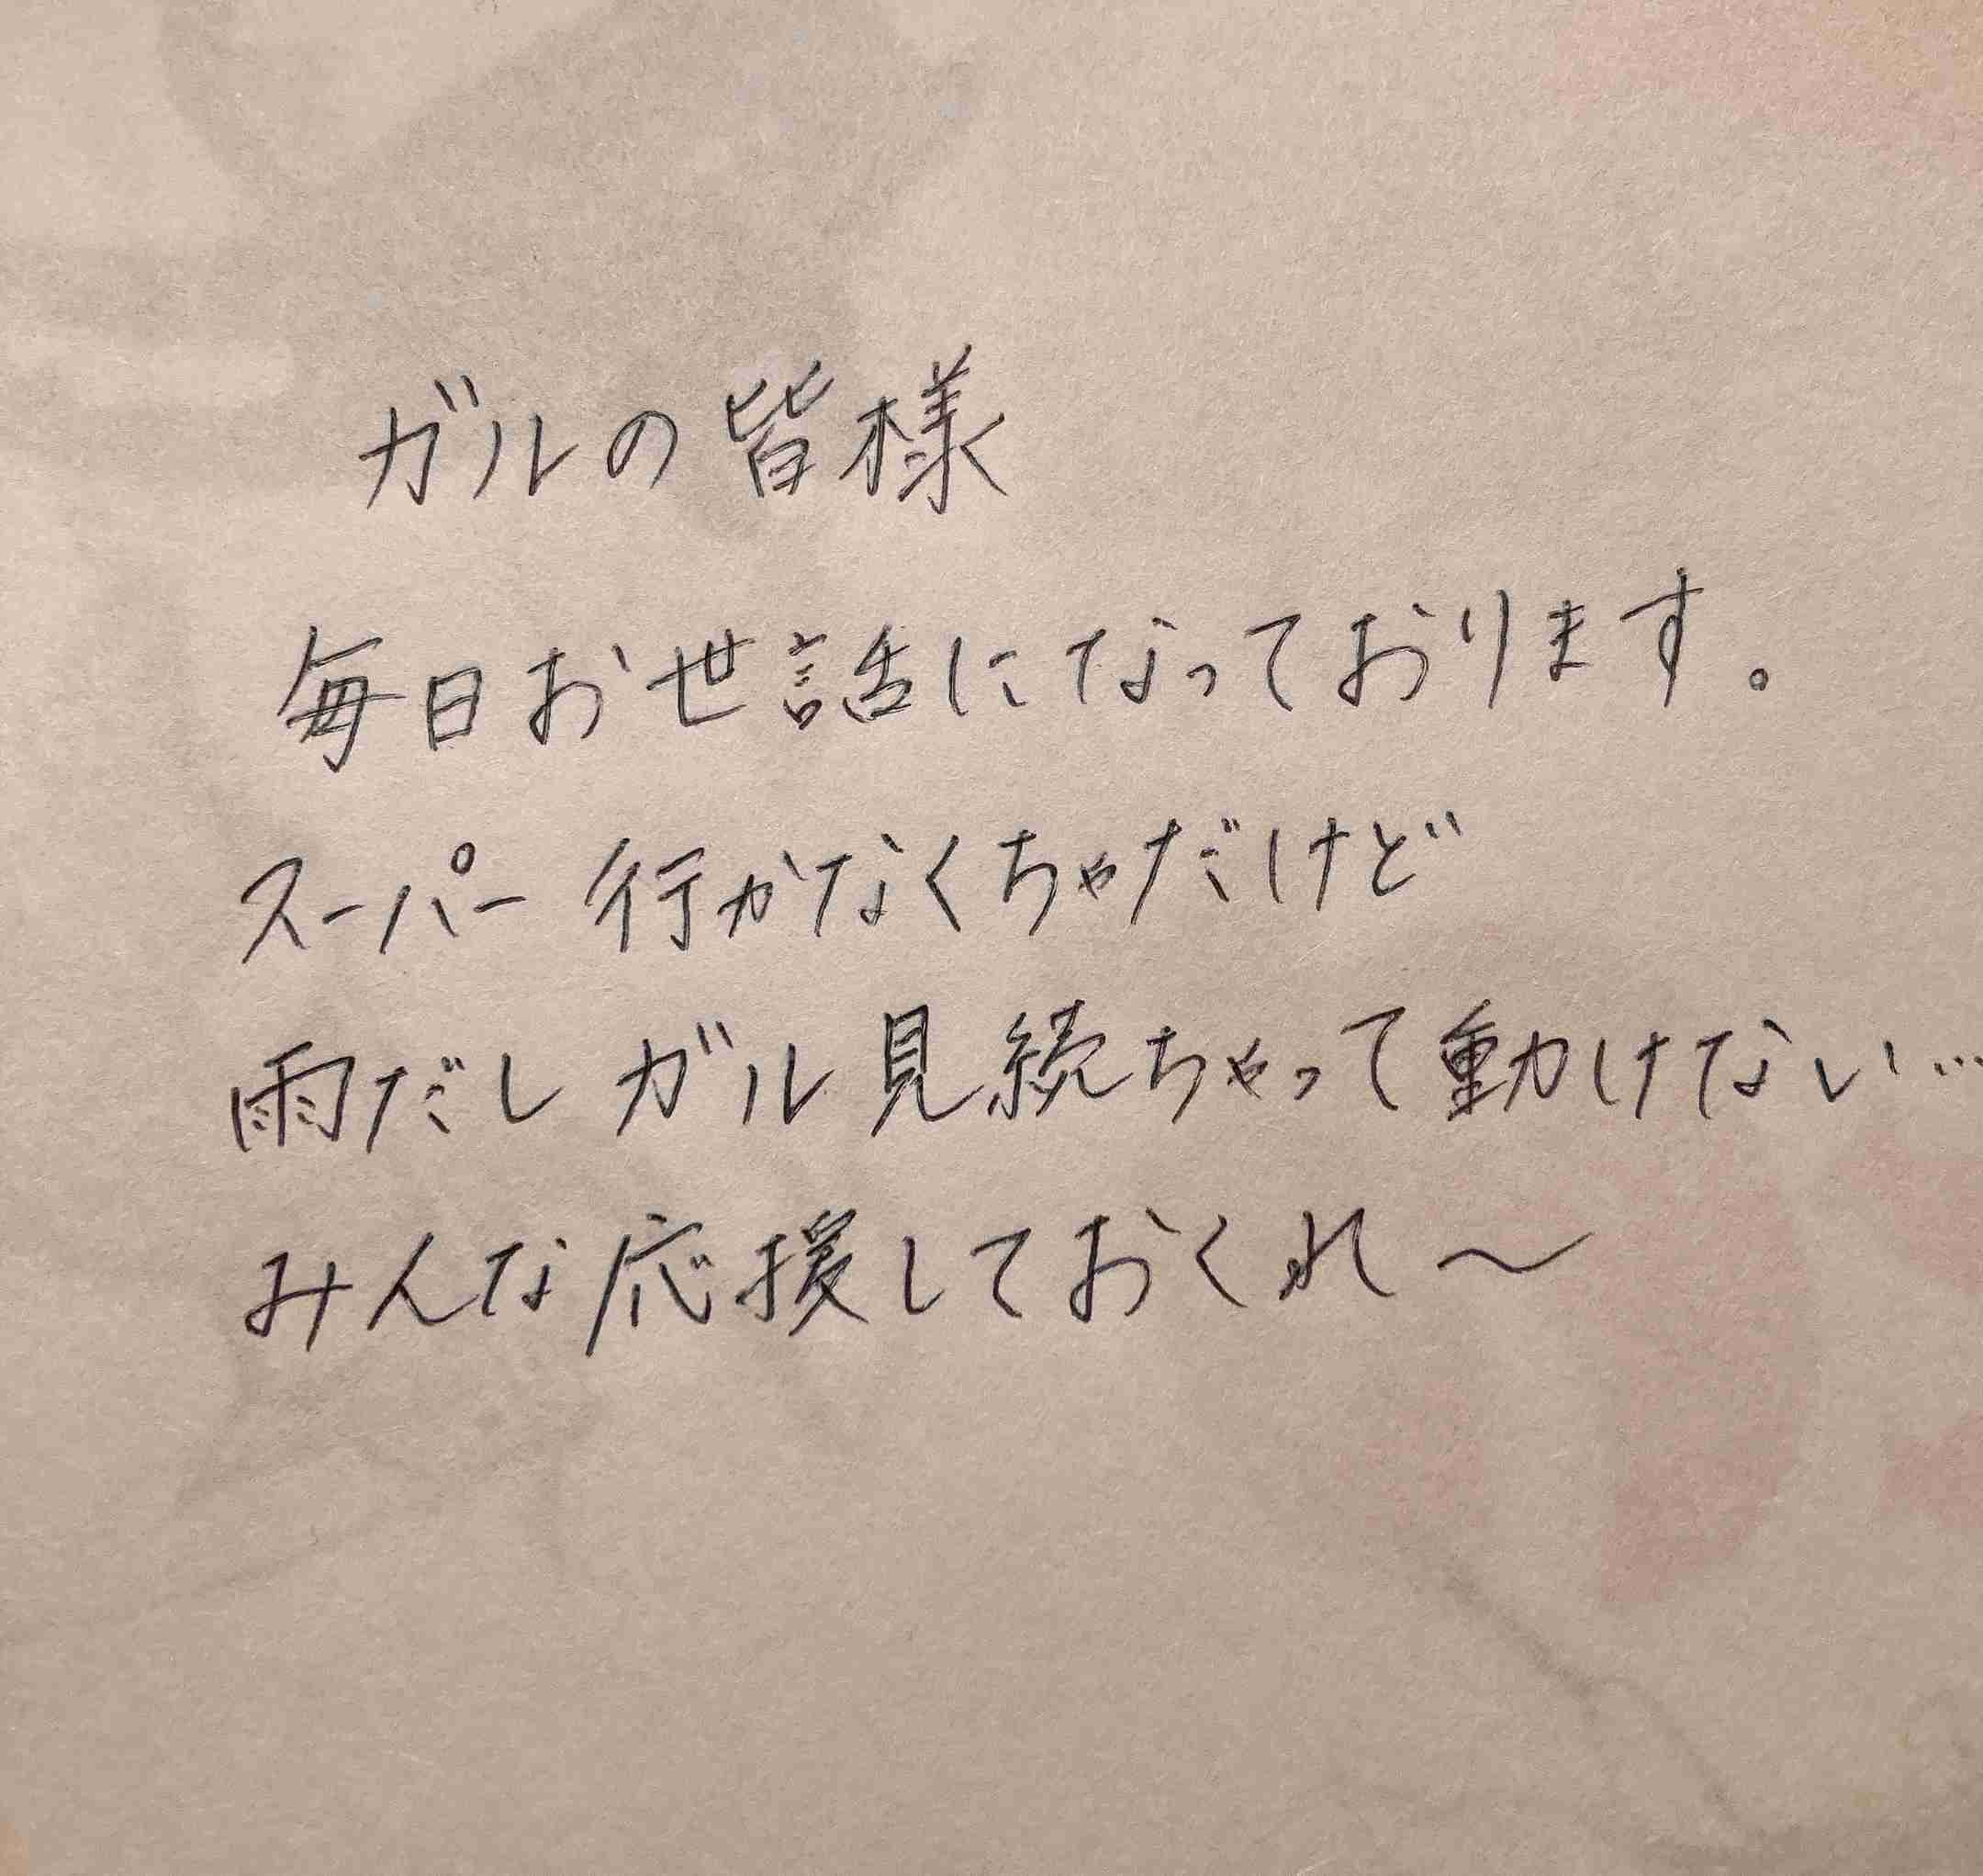 ガルの皆様
毎日お世話になっております。
スーパー行かなくちゃだけど
雨だしガル見続ちゃって動けない…
みんな応援しておくれ～